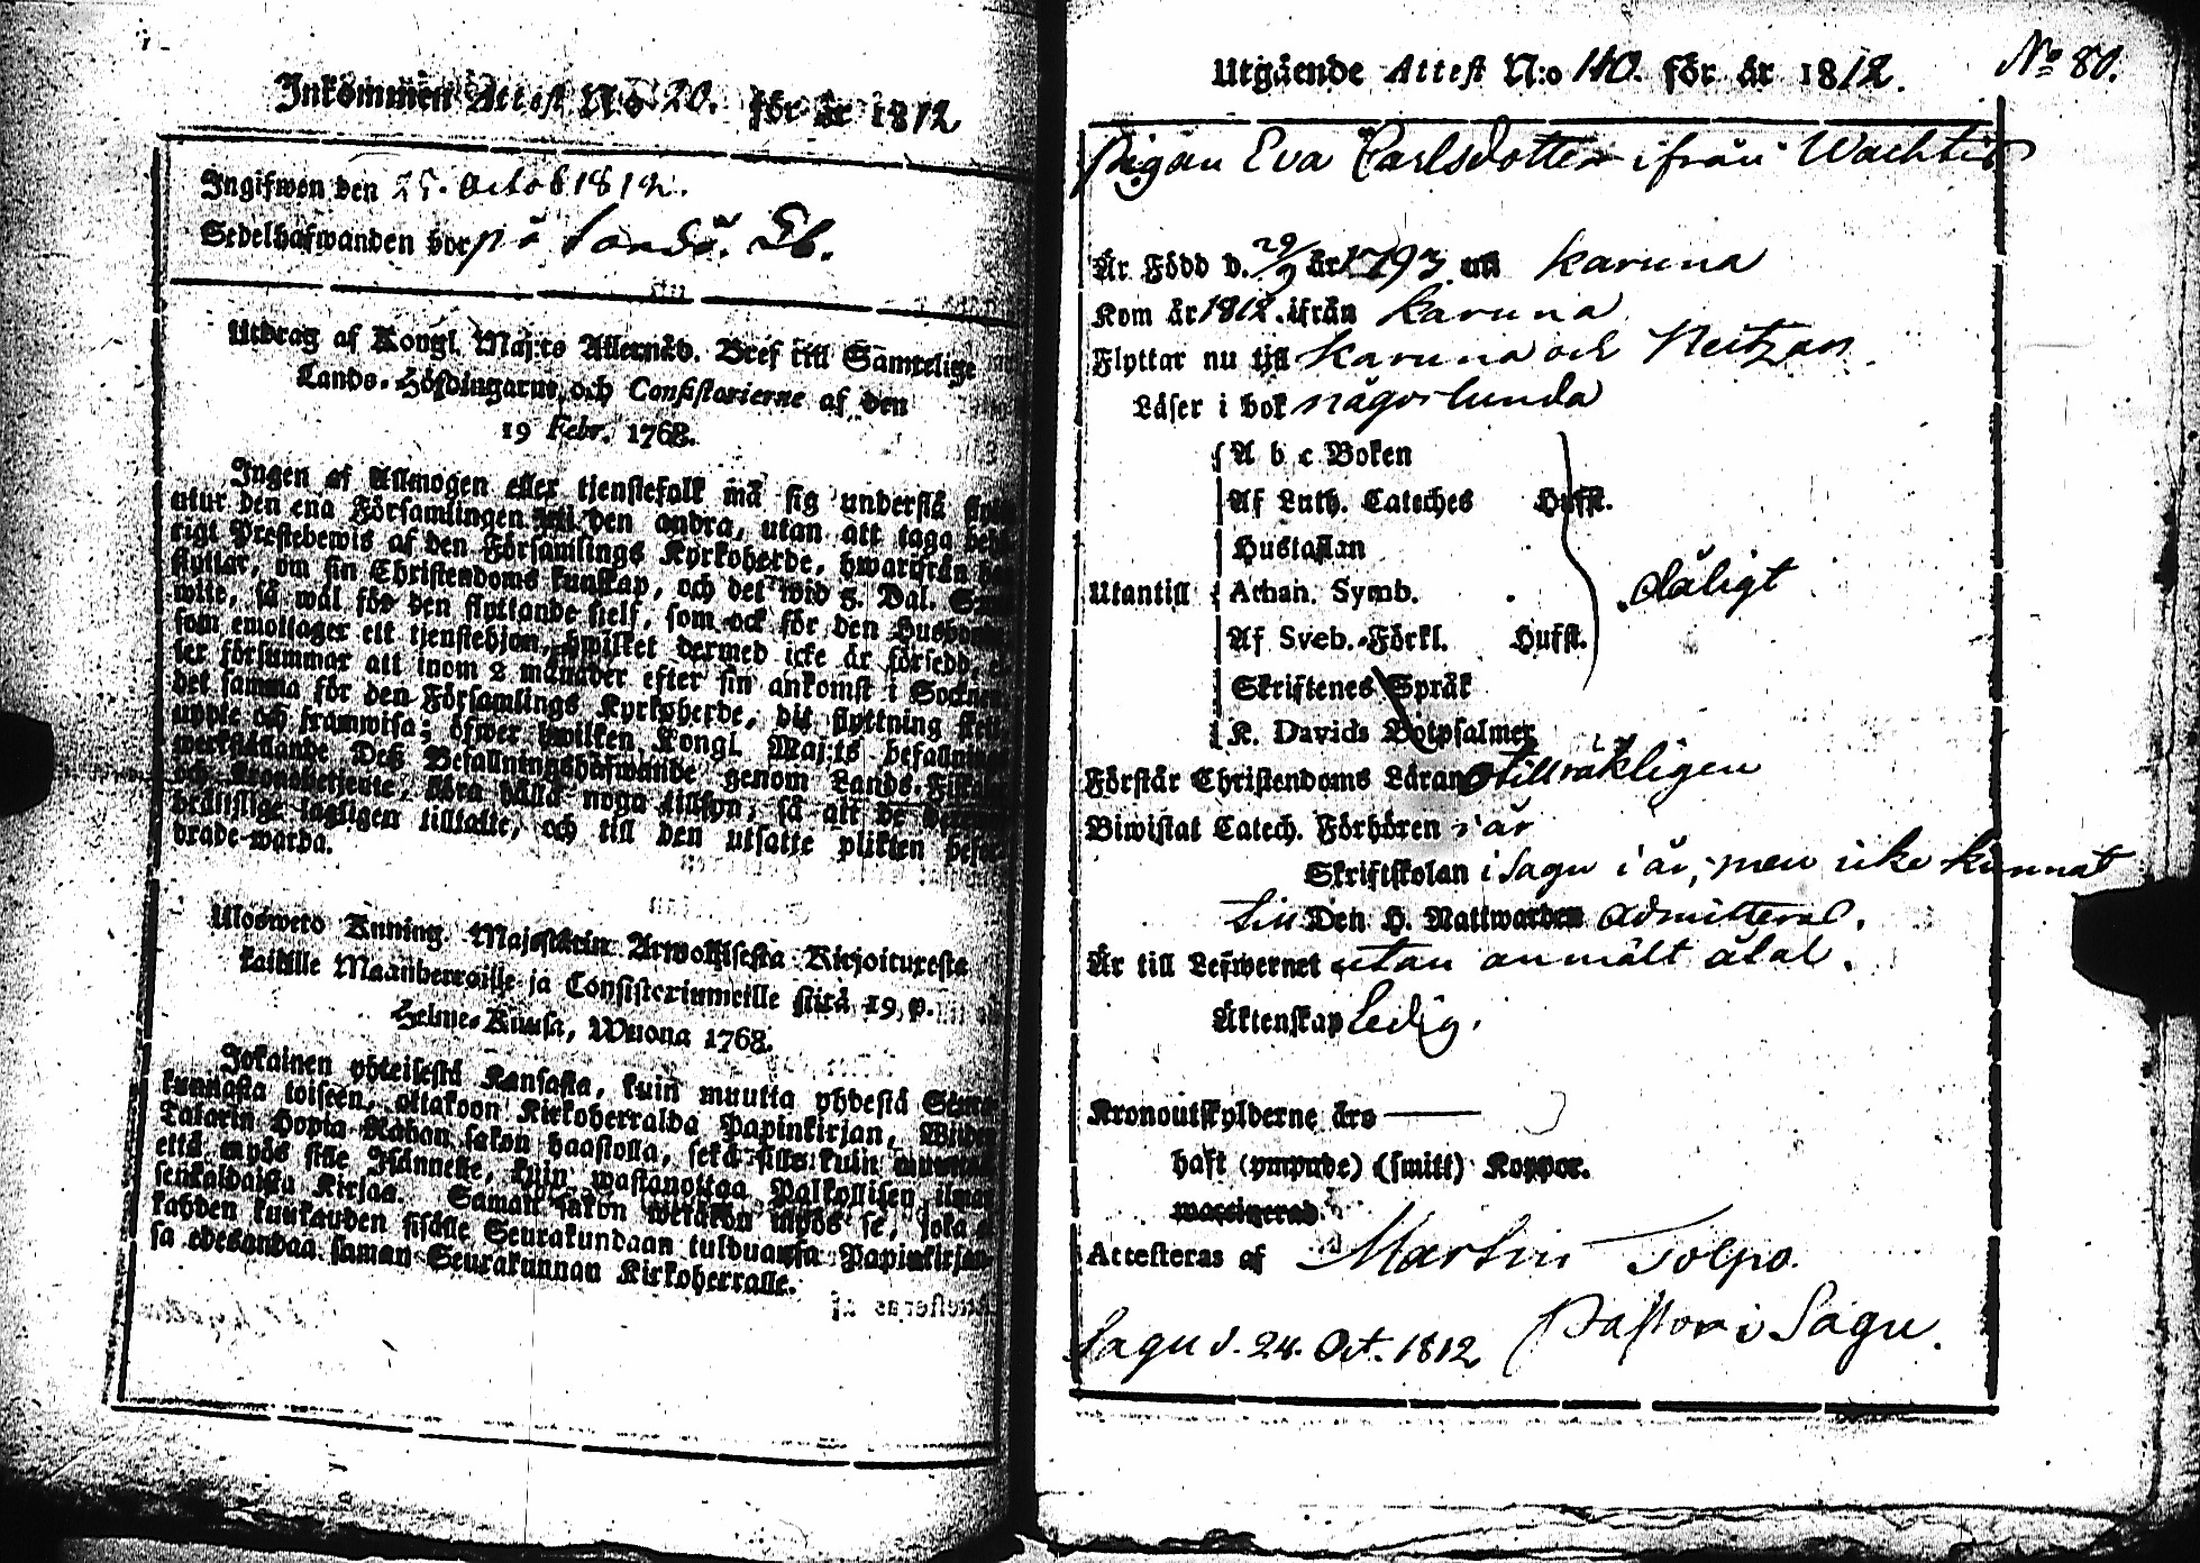 Inkommen Attest No 20. för år 1812
Ingifwen den 25. Octob 1812.
Sedelhafwanden bor på Sandö. Eb.
Utdrag af Kongl. Maj:ts Allernåd. Bref till Samtelige
Lands-Höfdingarne och Consistorierne af den
19 Febr. 1768.
Ingen af Allmogen eller tjenstefolk må sig understå
utur den ena Församlingen till den andra, utan att taga
rigt Prestebewis af den Församlings Kyrkoherde, hwarifrån
flyttar, om sin Christendoms kunskap, och det wid 5. Dal.
wite, så wäl för den flyttande sielf, som ock för den
som emottager ett tjenstehjon, hwilket dermed icke är försedd,
ler försummar att inom 2 månader efter sin ankomst i Socknen
det samma för den Församlings Kyrkoherde, dit flyttning
uppte och framwisa; öfwer hwilken Kongl. Maj:ts befallning
werkställande Deß Befallningshafwande genom Lands-
och Kronobetjente, böra hålla noga tillsyn, så att de
brättslige lagligen tilltalte, och till den utsatte plikten
brade warda.
Ulosweto Kuning. Majestätin Armollisesta Kirjoituxesta
kaikille Maanherroille ja Consistoriumeille siitä 19. p.
Helme-Kuusa, Wuona 1768.
Jokainen yhteisestä Kansasta, kuin muutta yhdestä
kunnasta toiseen, ottakoon Kirkoherralda Papinkirjan,
Talarin Hopia Rahan sakon haastolla, sekä sille kuin
että myös sille Isännelle, kuin wastanottaa Palkollisen ilman
senkaldaista Kirjaa. Saman sakon wetäkön myös se, joka
kahden kuukauden sisälle Seurakundaan tulduansa Papinkirjan
sa edesandaa saman Seurakunnan Kirkoherralle.
Utgående Attest N:o 110. för år 1812.
No 80.
Pigan Eva Carlsdotter ifrån Wachtis
Är Född d. 29/9 år 1793. uti Karuna
Kom år 1812. ifrån Karuna
Flyttar nu till Karuna och Neitzan
Läser i bok någorlunda
A b c Boken
Af Luth. Cateches Hufst.
Hustaflan
Utantill Athan. Symb. dåligt
Af Sveb. Förkl. Hufst.
Skriftenes Språk
K. Davids Botpsalmer
Förstår Christendoms Läran otillräkligen
Biwistat Catech. Förhören i år
Skriftskolan i Sagu i år, men icke kunnat
till Den H. Nattwarden admitteras.
Är till Lefwernet utan anmält åtal.
Äktenskap Ledig.
Kronoutskylderne äro
haft (ympade) (smitt) Koppor.
waccinerad
Attesteras af Martin Tolpo.
Pastor i Sagu.
Sagu d. 24. Oct. 1812.